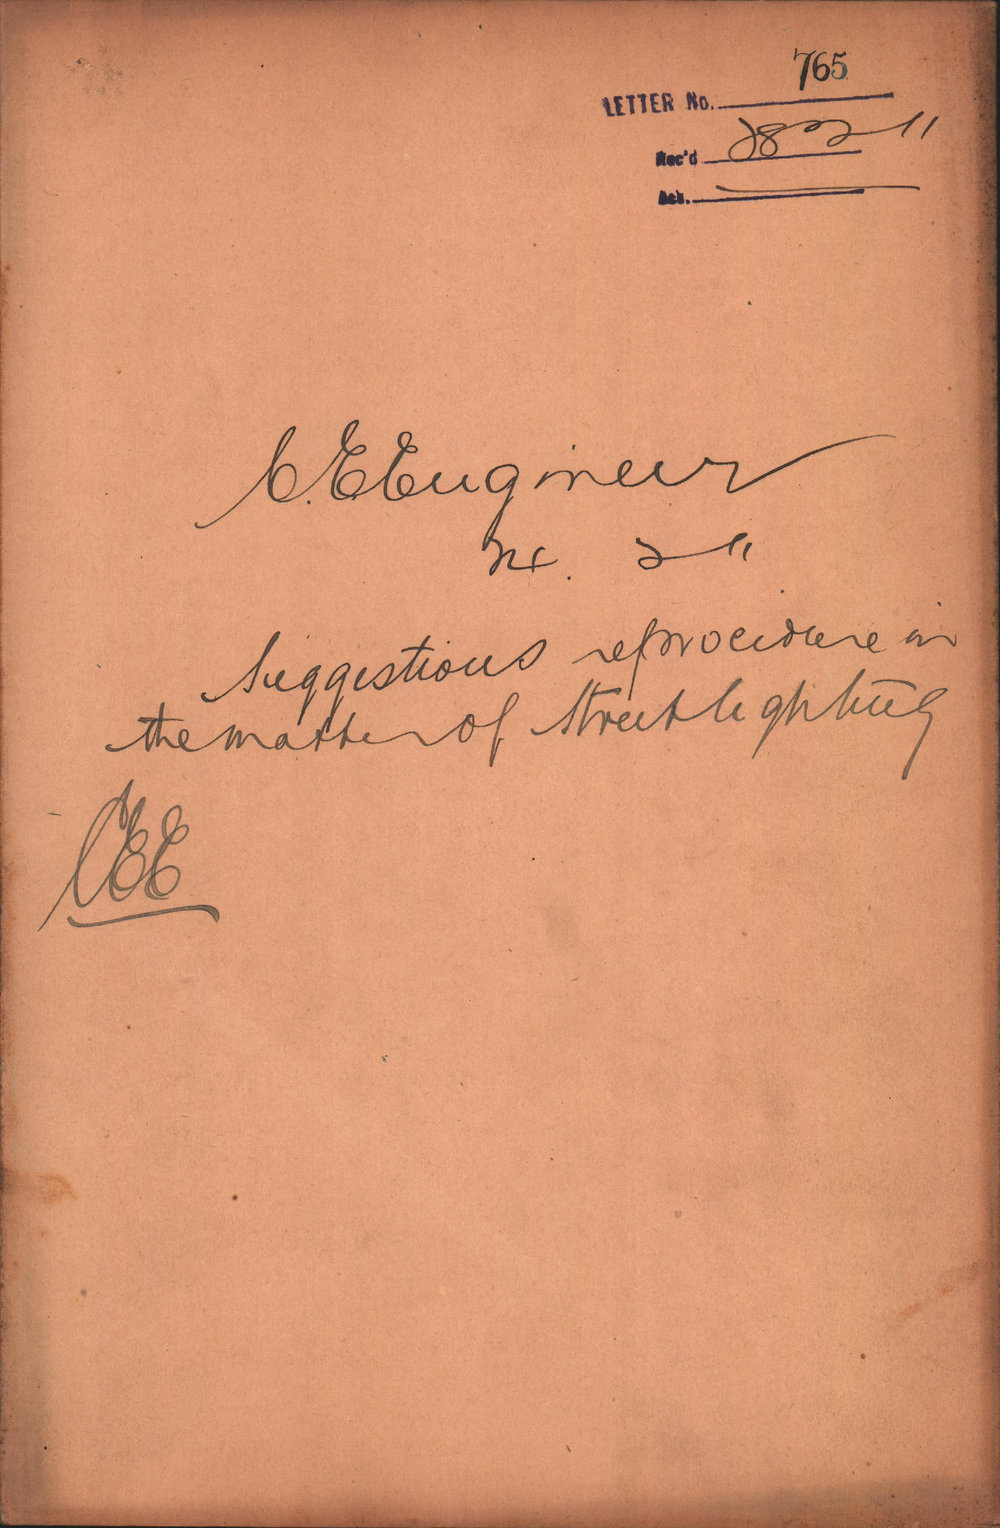 LETTER No. 765
Rec'd 28 2 11
Ack.
C. E. Engineer
24. 2 11
Suggestions re procedure in
the matter of Street lighting
CEE